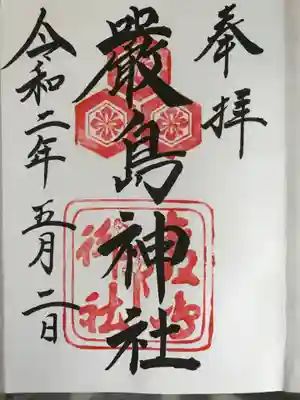 奉拝
嚴島神社
令和二年五月二日